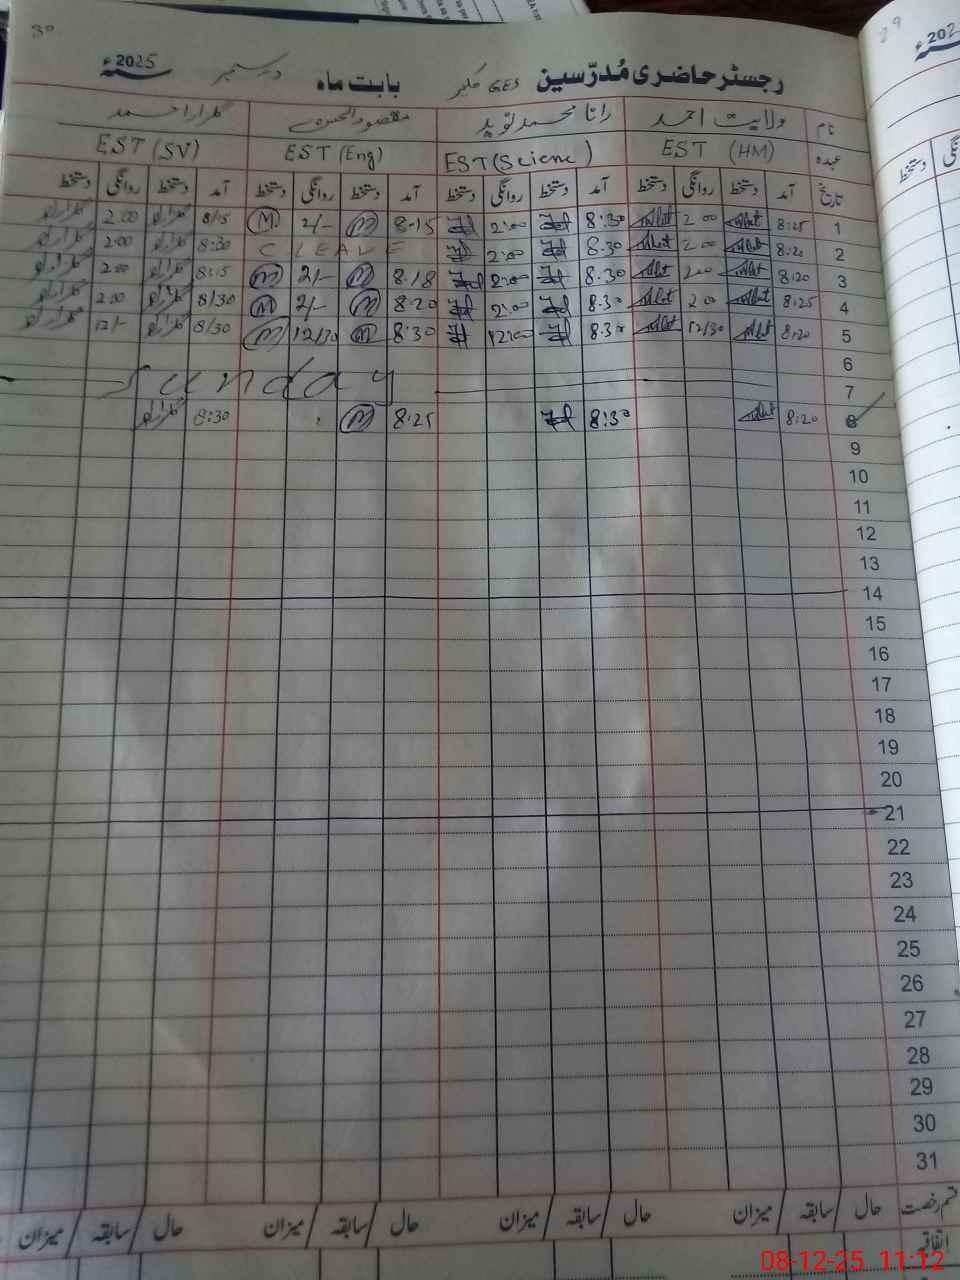 30
رجسٹر حاضری مُدرّسین GES بابت ماہ دسمبر 2025ء
نام ولایت احمد رانا محمد نوید مقصود الحسن گلزار احمد
عہدہ EST (HM) EST (Scienc) EST (Eng) EST (SV)
تاریخ آمد دستخط روانگی دستخط آمد دستخط روانگی دستخط آمد دستخط روانگی دستخط آمد دستخط روانگی دستخط
1 8:25 2:00 8:30 2:00 8.15 M 2/- M 8/15 2:00
2 8:20 2:00 8.30 2:00 C LEAVE 8:30 2:00
3 8:20 2:00 8.30 2:00 8.18 M 2/- M 8:15 2:00
4 8:25 2:00 8.30 2:00 8.20 M 2/- M 8/30 2:00
5 8:20 12/30 8.30 12:00 8.30 M 12/30 M 8/30 12/-
6
7 Sunday
8 8:20 8:30 8.25 M 8:30
9
10
11
12
13
14
15
16
17
18
19
20
21
22
23
24
25
26
27
28
29
30
31
قسم رخصت حال سابقہ میزان حال سابقہ میزان حال سابقہ میزان حال سابقہ میزان
اتفاقیہ
29
202
دستخط
08-12-25 11:12